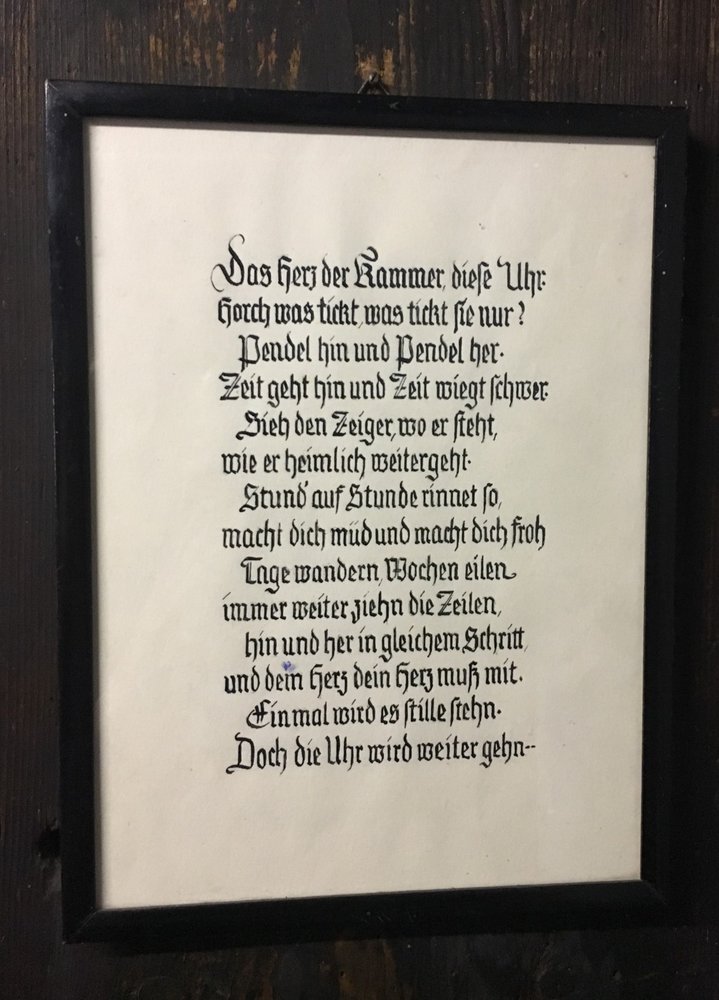 Das Herz der Kammer, diese Uhr.
Horch was tickt, was tickt sie nur?
Pendel hin und Pendel her.
Zeit geht hin und Zeit wiegt schwer.
Sieh den Zeiger, wo er steht,
wie er heimlich weitergeht.
Stund' auf Stunde rinnet so,
macht dich müd und macht dich froh
Tage wandern, Wochen eilen
immer weiter ziehn die Zeilen,
hin und her in gleichem Schritt,
und dein Herz dein Herz muß mit.
Einmal wird es stille stehn.
Doch die Uhr wird weiter gehn--